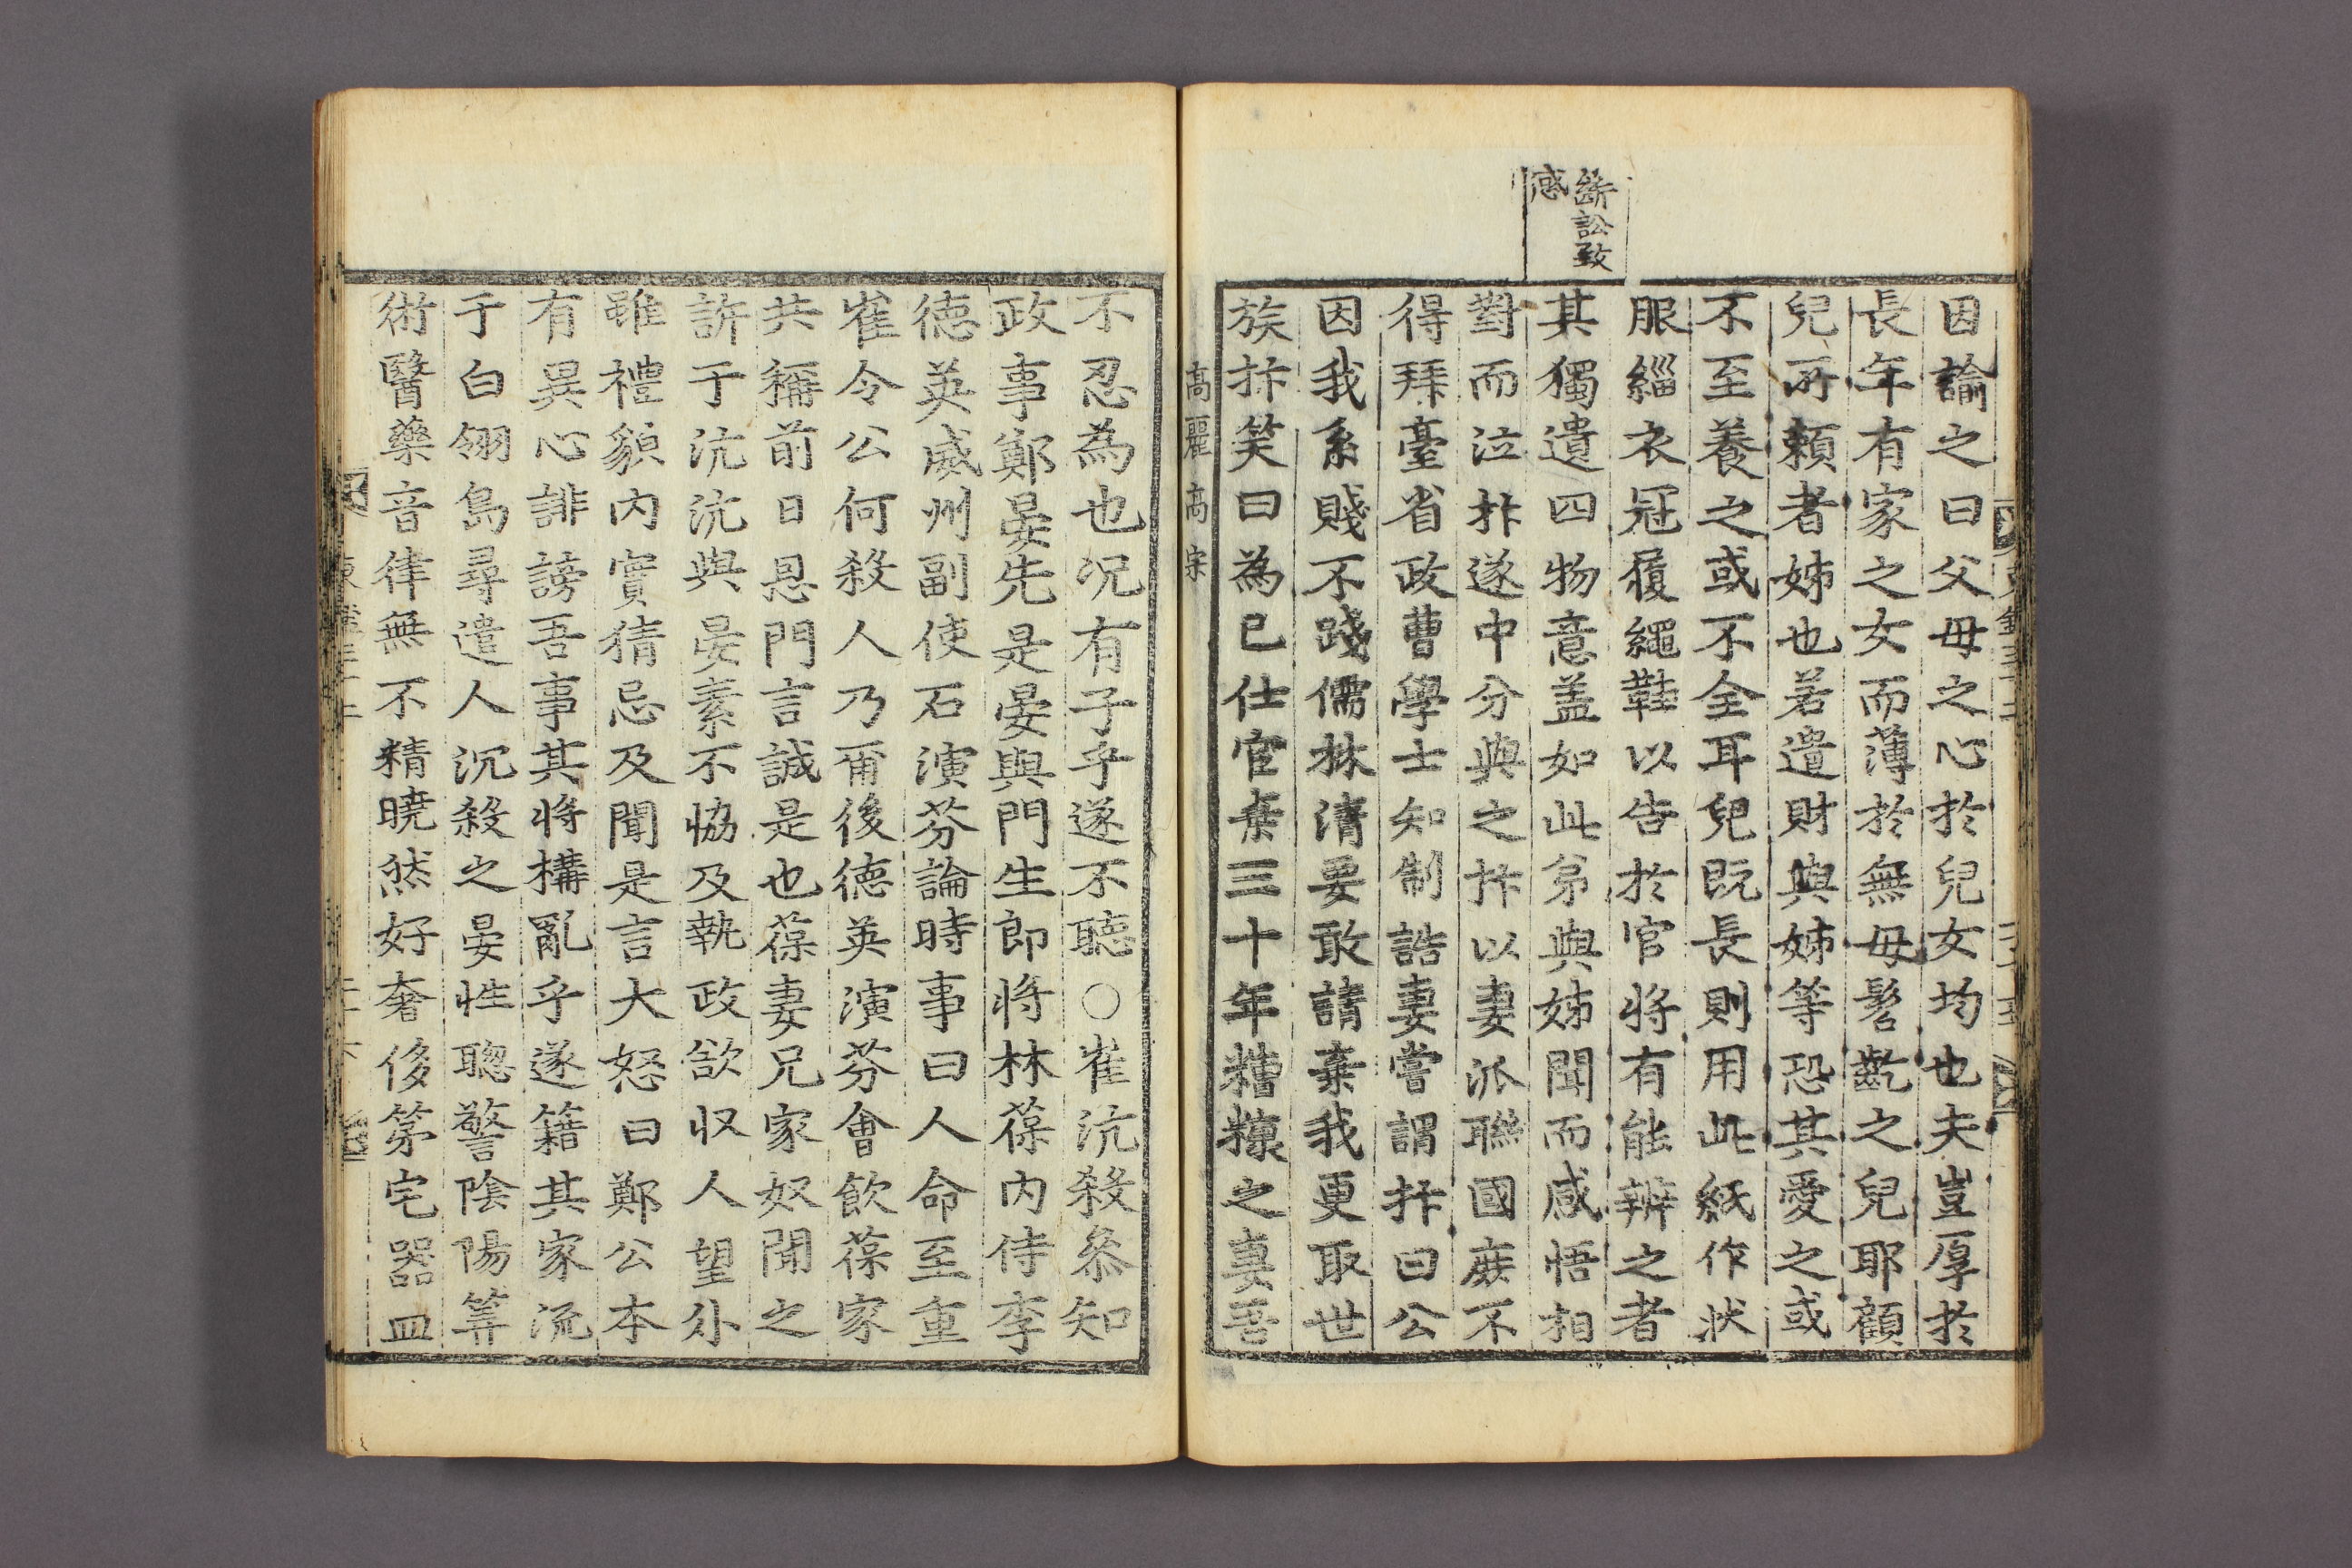 斷訟致
感
因諭之曰父母之心於兒女均也夫豈厚於
長年有家之女而薄於無母髫齓之兒耶顧
兒所賴者姊也若遺財與姊等恐其愛之或
不至養之或不全耳兒既長則用此紙作狀
服緇衣冠履繩鞋以告於官將有能辨之者
其獨遺四物意盖如此弟與姊聞而感悟相
對而泣抃遂中分與之抃以妻派聯國庶不
得拜臺省政曹學士知制誥妻嘗謂抃曰公
因我系賤不踐儒林清要敢請棄我更取世
族抃笑曰為已仕官棄三十年糟糠之妻吾
高麗高宗
不忍為也况有子乎遂不聽○崔沆殺叅知
政事鄭晏先是晏與門生郎將林葆內侍李
德英威州副使石演芬論時事曰人命至重
崔令公何殺人乃爾後德英演芬會飮葆家
共稱前日恩門言誠是也葆妻兄家奴聞之
訴于沆沆與晏素不恊及執政欲収人望外
雖禮貌內實猜忌及聞是言大怒曰鄭公本
有異心誹謗吾事其將構亂乎遂籍其家流
于白翎島尋遣人沉殺之晏性聰警陰陽筭
術醫藥音律無不精曉然好奢侈第宅器皿